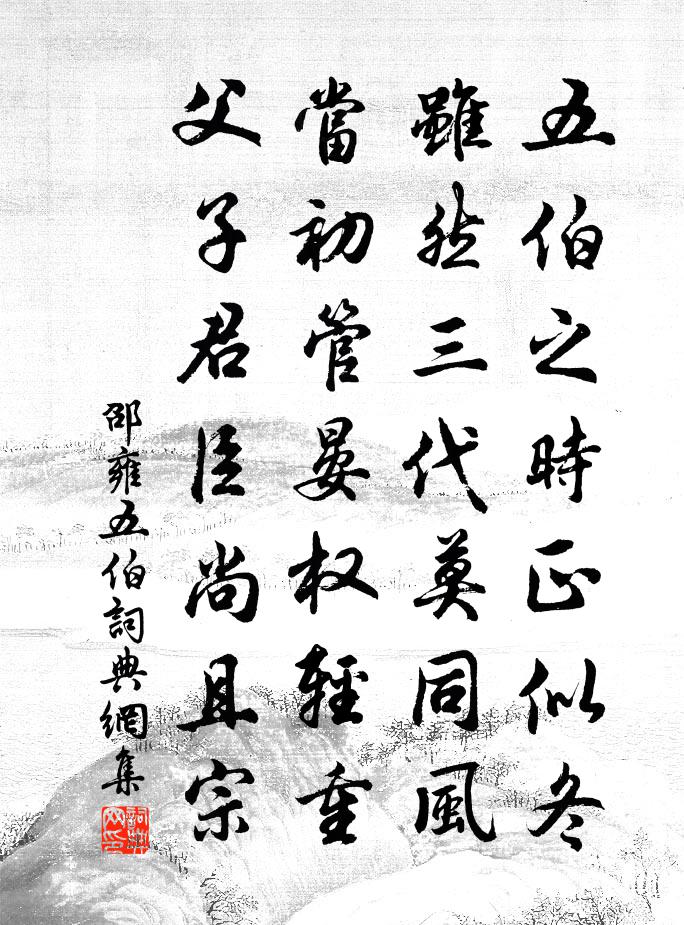 五伯之時正似冬
雖然三代莫同風
當初管晏权輕重
父子君臣尚且宗
邵雍五伯詞典網集
詞典网印